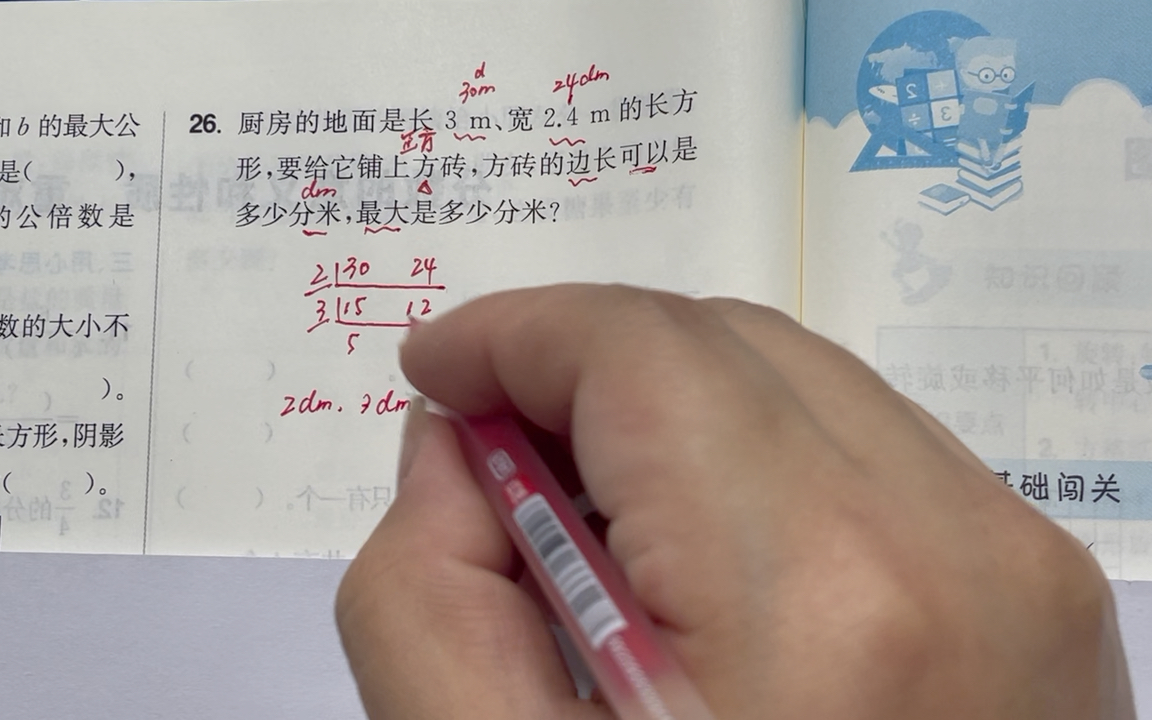 和 b 的最大公
是(    ),
的公倍数是
数的大小不
)。
长方形,阴影
(    )。
30m d
24dm
26. 厨房的地面是长 3 m、宽 2.4 m 的长方
正方
形,要给它铺上方砖,方砖的边长可以是
dm
多少分米,最大是多少分米?
2 30 24
3 15 12
5
2dm. 3dm
基础闯关